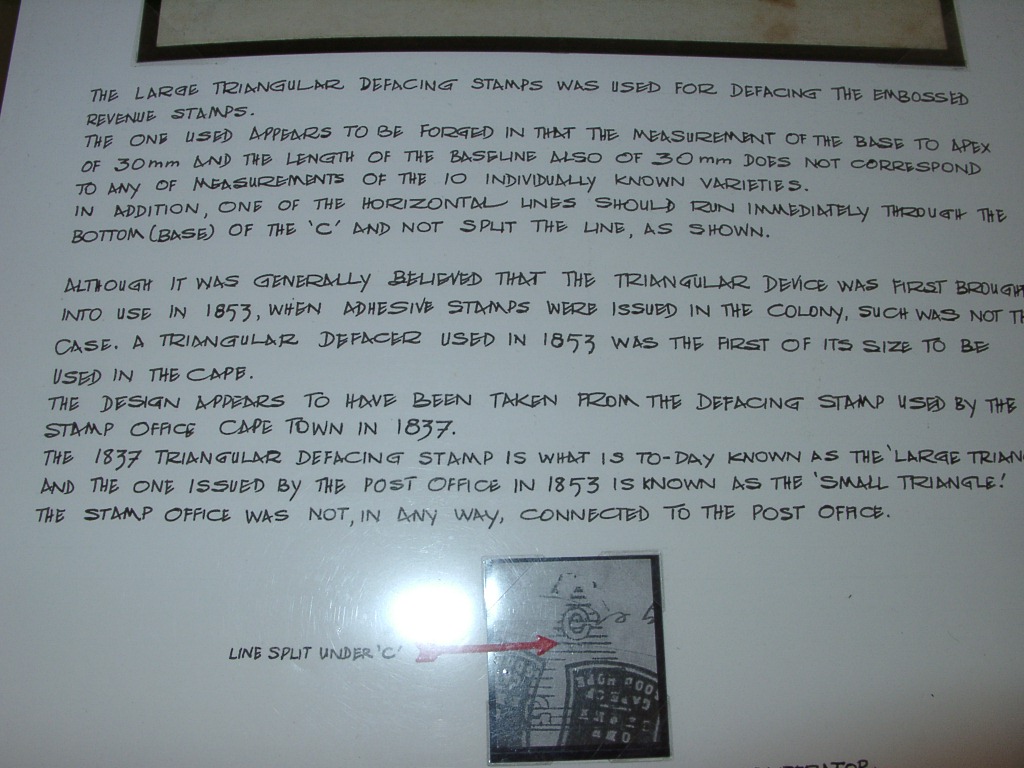 THE LARGE TRIANGULAR DEFACING STAMPS WAS USED FOR DEFACING THE EMBOSSED
REVENUE STAMPS.
THE ONE USED APPEARS TO BE FORGED IN THAT THE MEASUREMENT OF THE BASE TO APEX
OF 30mm AND THE LENGTH OF THE BASELINE ALSO OF 30mm DOES NOT CORRESPOND
TO ANY OF MEASUREMENTS OF THE 10 INDIVIDUALLY KNOWN VARIETIES.
IN ADDITION, ONE OF THE HORIZONTAL LINES SHOULD RUN IMMEDIATELY THROUGH THE
BOTTOM (BASE) OF THE 'C' AND NOT SPLIT THE LINE, AS SHOWN.
ALTHOUGH IT WAS GENERALLY BELIEVED THAT THE TRIANGULAR DEVICE WAS FIRST BROUGH
INTO USE IN 1853, WHEN ADHESIVE STAMPS WERE ISSUED IN THE COLONY, SUCH WAS NOT TH
CASE. A TRIANGULAR DEFACER USED IN 1853 WAS THE FIRST OF ITS SIZE TO BE
USED IN THE CAPE.
THE DESIGN APPEARS TO HAVE BEEN TAKEN FROM THE DEFACING STAMP USED BY THE
STAMP OFFICE CAPE TOWN IN 1837.
THE 1837 TRIANGULAR DEFACING STAMP IS WHAT IS TO-DAY KNOWN AS THE 'LARGE TRIAN
AND THE ONE ISSUED BY THE POST OFFICE IN 1853 IS KNOWN AS THE 'SMALL TRIANGLE.'
THE STAMP OFFICE WAS NOT, IN ANY WAY, CONNECTED TO THE POST OFFICE.
LINE SPLIT UNDER 'C'
OOD HOPE
CAPE OF